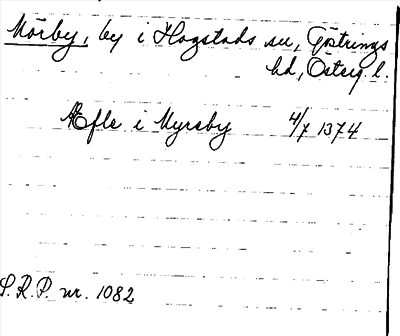 Mörby, by i Hogstads sn, Göstrings
hd, Östերg l.
Æfle i Myrsby 4/7 1374
S.R.P. nr. 1082